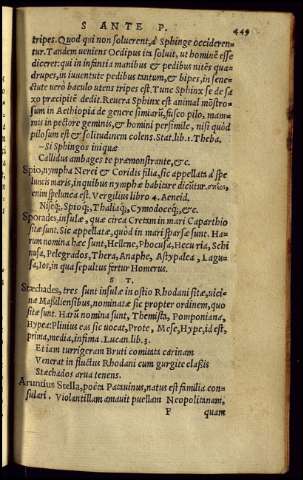 S ANTE P. 449
tripes. Quod qui non soluerent, à Sphinge occideren-
tur. Tandem ueniens Oedipus ita soluit, ut hominē esse
diceret: qui in infantia manibus & pedibus nitēs qua-
drupes, in iuuentute pedibus tantum, & bipes, in sene-
ctute uerò baculo utens tripes est. Tunc Sphinx se de sa
xo præcipitē dedit. Reuera Sphinx est animal mōstro-
sum in Aethiopia de genere simiarū, fusco pilo, mam-
mis in pectore geminis, & homini persimile, nisi quòd
pilosum est & solitudinem colens. Stat. lib. 1. Theba.
Si Sphingos iniquæ
Callidus ambages te præmonstrante, &c.
Spio, nympha Nerei & Coridis filia, sic appellata à spe
luncis maris, in quibus nymphæ habitare dicūtur.
enim spelunca est. Vergilius libro 4. Aeneid.
Niseq́;, Spioq́;, Thaliaq́;, Cymodoceq́;, &c.
Sporades, insulæ, quæ circa Cretam in mari Carpathio
sitæ sunt. Sic appellatæ, quòd in mari sparsæ sunt. Ha-
rum nomina hæc sunt, Hellene, Phocusa, Hecuria, Schi
nusa, Pelegrados, Thera, Anaphe, Astypalea, Lagu-
sa, Ios, in qua sepultus fertur Homerus.
S T.
Stæchades, tres sunt insulæ in ostio Rhodani sitæ, uici-
næ Massiliensibus, nominatæ sic propter ordinem, quo
sitæ sunt. Harū nomina sunt, Themista, Pomponiana,
Hypea: Plinius eas sic uocat, Prote, Mese, Hype, id est,
prima, media, infima. Lucan. lib. 3.
Et iam turrigeram Bruti comitata carinam
Venerat in fluctus Rhodani cum gurgite classis
Stæchados arua tenens.
Arunctius Stella, poëta Patauinus, natus est familia con-
sulari. Violantillam amauit puellam Neopolitanam,
F quam